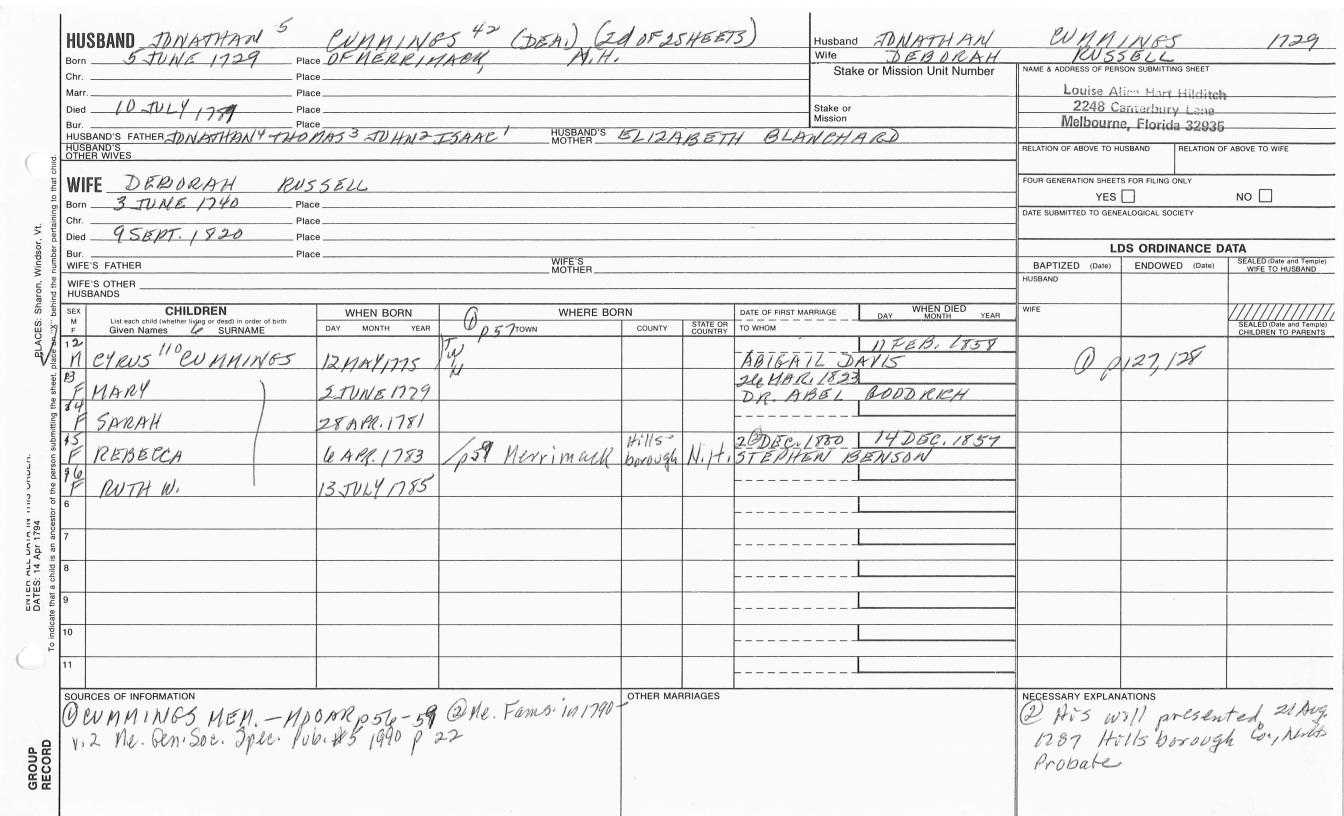 HUSBAND JONATHAN 5 CUMMINGS 42 (DEA.) (2d OF 2 SHEETS)
Born 5 JUNE 1729 Place OF MERRIMACK, N.H.
Chr. Place
Marr. Place
Died 10 JULY 1787 Place
Bur. Place
HUSBAND'S FATHER JONATHAN 4 THOMAS 3 JOHN 2 ISAAC 1 HUSBAND'S MOTHER ELIZABETH BLANCHARD
HUSBAND'S OTHER WIVES
Husband JONATHAN CUMMINGS 1729
Wife DEBORAH RUSSELL
Stake or Mission Unit Number
Stake or Mission
NAME & ADDRESS OF PERSON SUBMITTING SHEET
Louise Alice Hart Hilditch
2248 Canterbury Lane
Melbourne, Florida 32935
RELATION OF ABOVE TO HUSBAND RELATION OF ABOVE TO WIFE
FOUR GENERATION SHEETS FOR FILING ONLY
YES NO
DATE SUBMITTED TO GENEALOGICAL SOCIETY
WIFE DEBORAH RUSSELL
Born 3 JUNE 1740 Place
Chr. Place
Died 9 SEPT. 1820 Place
Bur. Place
WIFE'S FATHER WIFE'S MOTHER
WIFE'S OTHER HUSBANDS
LDS ORDINANCE DATA
BAPTIZED (Date) ENDOWED (Date) SEALED (Date and Temple) WIFE TO HUSBAND
HUSBAND
WIFE
SEALED (Date and Temple) CHILDREN TO PARENTS
SEX M F CHILDREN WHEN BORN WHERE BORN DATE OF FIRST MARRIAGE WHEN DIED
List each child (whether living or dead) in order of birth
Given Names 6 SURNAME DAY MONTH YEAR 1 p57 TOWN COUNTY STATE OR COUNTRY TO WHOM DAY MONTH YEAR
12 M CYRUS 110 CUMMINGS 12 MAY 1775 11 FEB. 1858
ABIGAIL DAVIS 1 p127, 128
F MARY 2 JUNE 1779 26 MAR. 1823
DR. ABEL GODDRICH
F SARAH 28 APR. 1781
F REBECCA 6 APR. 1783 /p59 Merrimack Hillsborough N.H. DEC. 1800 14 DEC. 1857
STEPHEN BENSON
F RUTH W. 13 JULY 1785
6
7
8
9
10
11
SOURCES OF INFORMATION
1 CUMMINGS MEM. - MOOAR p56-59 2 Me. Fams. in 1790-
v.2 Me. Gen. Soc. Spec. Pub. #5 1990 p 22
OTHER MARRIAGES
NECESSARY EXPLANATIONS
2 His will presented 21 Aug.
1787 Hillsborough Co.,
Probate
PLACES: Sharon, Windsor, Vt.
ENTER ALL DATA IN THIS ORDER:
DATES: 14 Apr 1794
To indicate that a child is an ancestor of the person submitting the sheet, place an "X" behind the number pertaining to that child.
GROUP RECORD